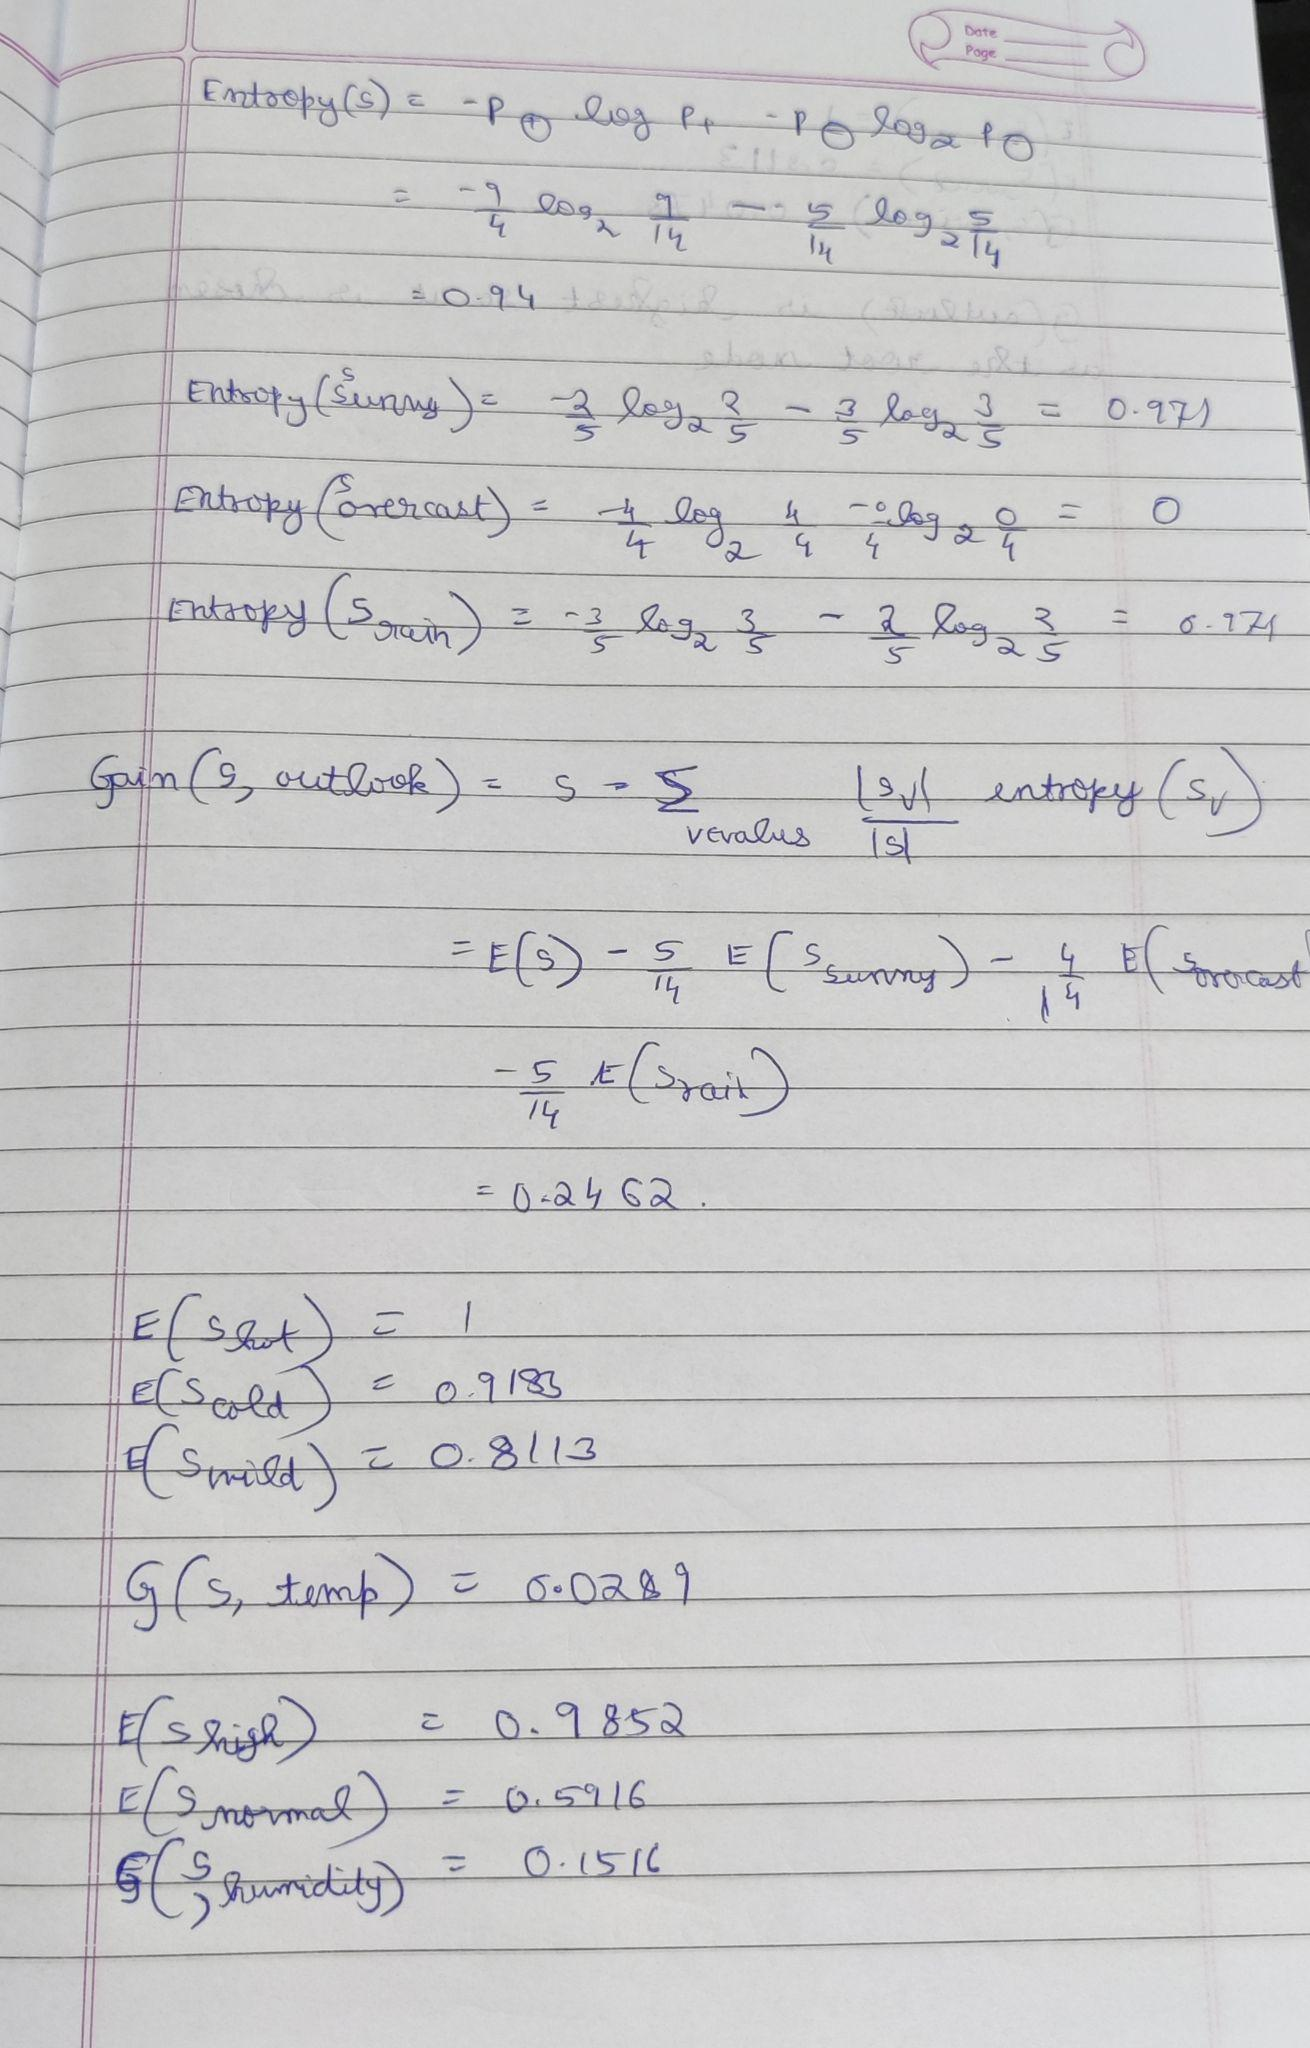 Date
Page
Entropy(S) = -P⊕ log P+ -P⊖ log2 P⊖
= -9/4 log2 9/14 - 5/14 log2 5/14
= 0.94
Entropy(S sunny) = -2/5 log2 2/5 - 3/5 log2 3/5 = 0.971
Entropy(S overcast) = -4/4 log2 4/4 -0/4 log2 0/4 = 0
Entropy(S rain) = -3/5 log2 3/5 - 2/5 log2 2/5 = 0.971
Gain(S, outlook) = S - Σ vεvalus |Sv|/|S| entropy(Sv)
= E(S) - 5/14 E(S sunny) - 4/14 E(S ovrcast
-5/14 E(S rain)
= 0.2462.
E(S hot) = 1
E(S cold) = 0.9183
E(S mild) = 0.8113
G(S, temp) = 0.0289
E(S high) = 0.9852
E(S normal) = 0.5916
G(S, humidity) = 0.1516